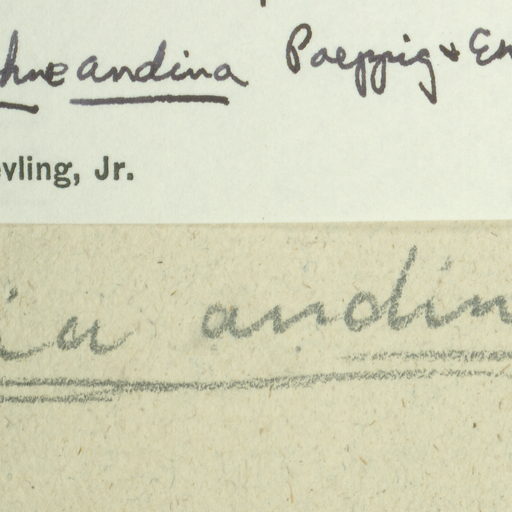 hne andina Poeppig & En
evling, Jr.
ia andin